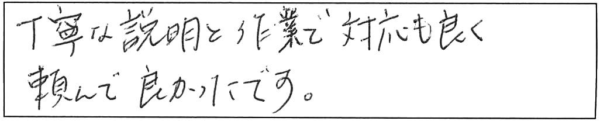 丁寧な説明と作業で対応も良く
頼んで良かったです。